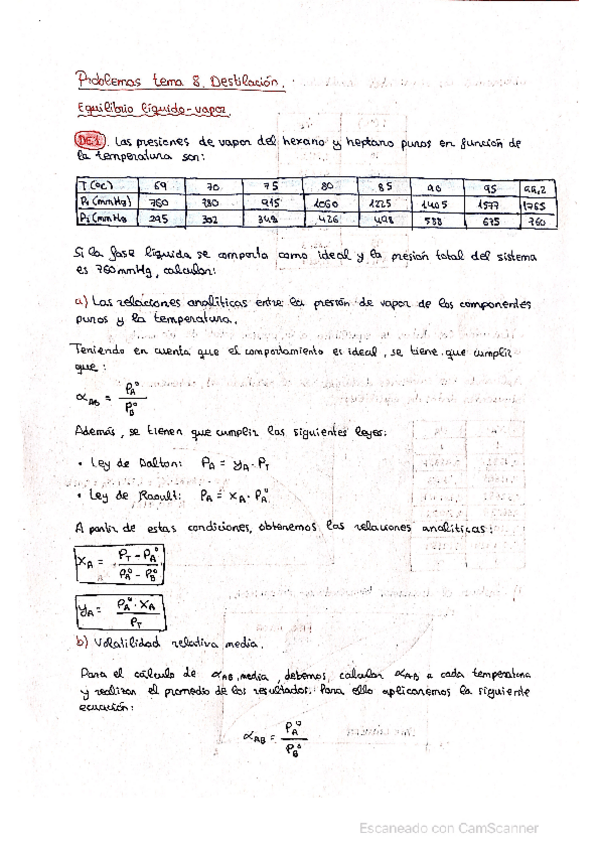 Problemas tema 8. Destilación.
Equilibrio líquido-vapor.
DE.1. Las presiones de vapor del hexano y heptano puros en función de
la temperatura son:
T (ºC) 69 70 75 80 85 90 95 99,2
P (mmHg) 760 780 915 1060 1225 1405 1577 1765
P (mmHg 295 302 348 426 498 588 675 760
Si la fase líquida se comporta como ideal y la presión total del sistema
es 760 mmHg, calcular:
a) Las relaciones analíticas entre la presión de vapor de los componentes
puros y la temperatura.
Teniendo en cuenta que el comportamiento es ideal, se tiene que cumplir
que:
αAB = PAº / PBº
Además, se tienen que cumplir las siguientes leyes:
• Ley de Dalton: PA = yA · PT
• Ley de Raoult: PA = xA · PAº
A partir de estas condiciones, obtenemos las relaciones analíticas:
xA = PT - PAº / PAº - PBº
yA = PAº · xA / PT
b) Volatilidad relativa media.
Para el cálculo de αAB, media, debemos calcular αAB a cada temperatura
y realizar el promedio de los resultados. Para ello aplicaremos la siguiente
ecuación:
αAB = PAº / PBº
Escaneado con CamScanner